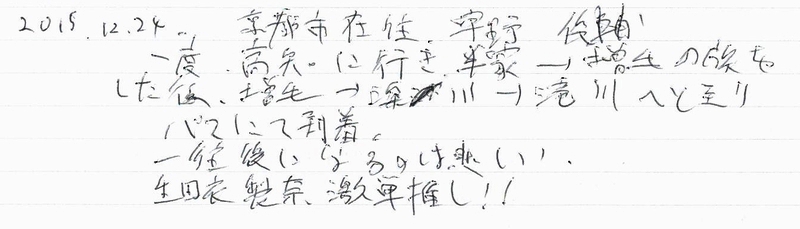 2015.12.24. 京都市在住 宇野 俊輔
一度、高知に行き、半家→増毛の旅を
した後、増毛→深川→滝川へと至り
バスにて到着。
になるのは悲しい。
生田衣梨奈 激単推し!!